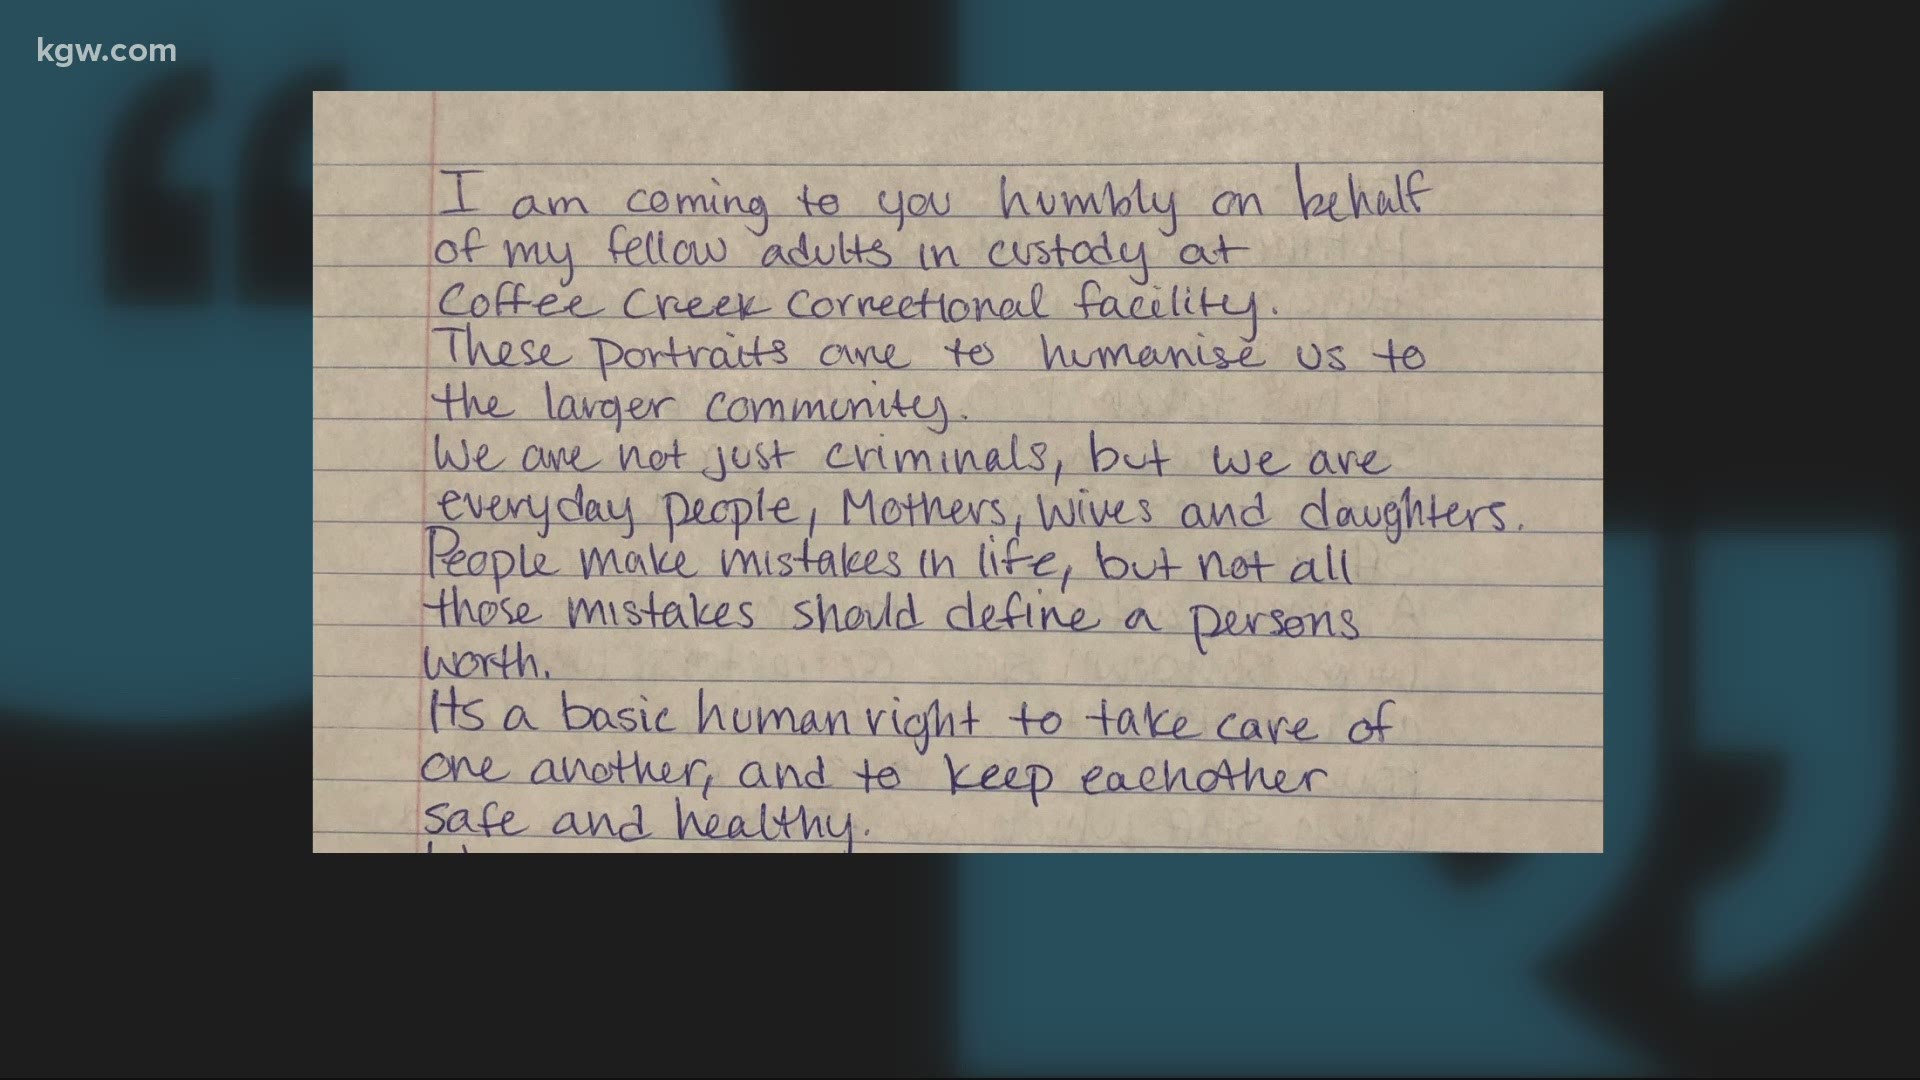 kgw.com
I am coming to you humbly on behalf
of my fellow adults in custody at
Coffee Creek Correctional facility.
These portraits are to humanise us to
the larger community.
We are not just criminals, but we are
everyday people, Mothers, Wives and daughters.
People make mistakes in life, but not all
those mistakes should define a persons
worth.
Its a basic human right to take care of
one another, and to keep eachother
safe and healthy.